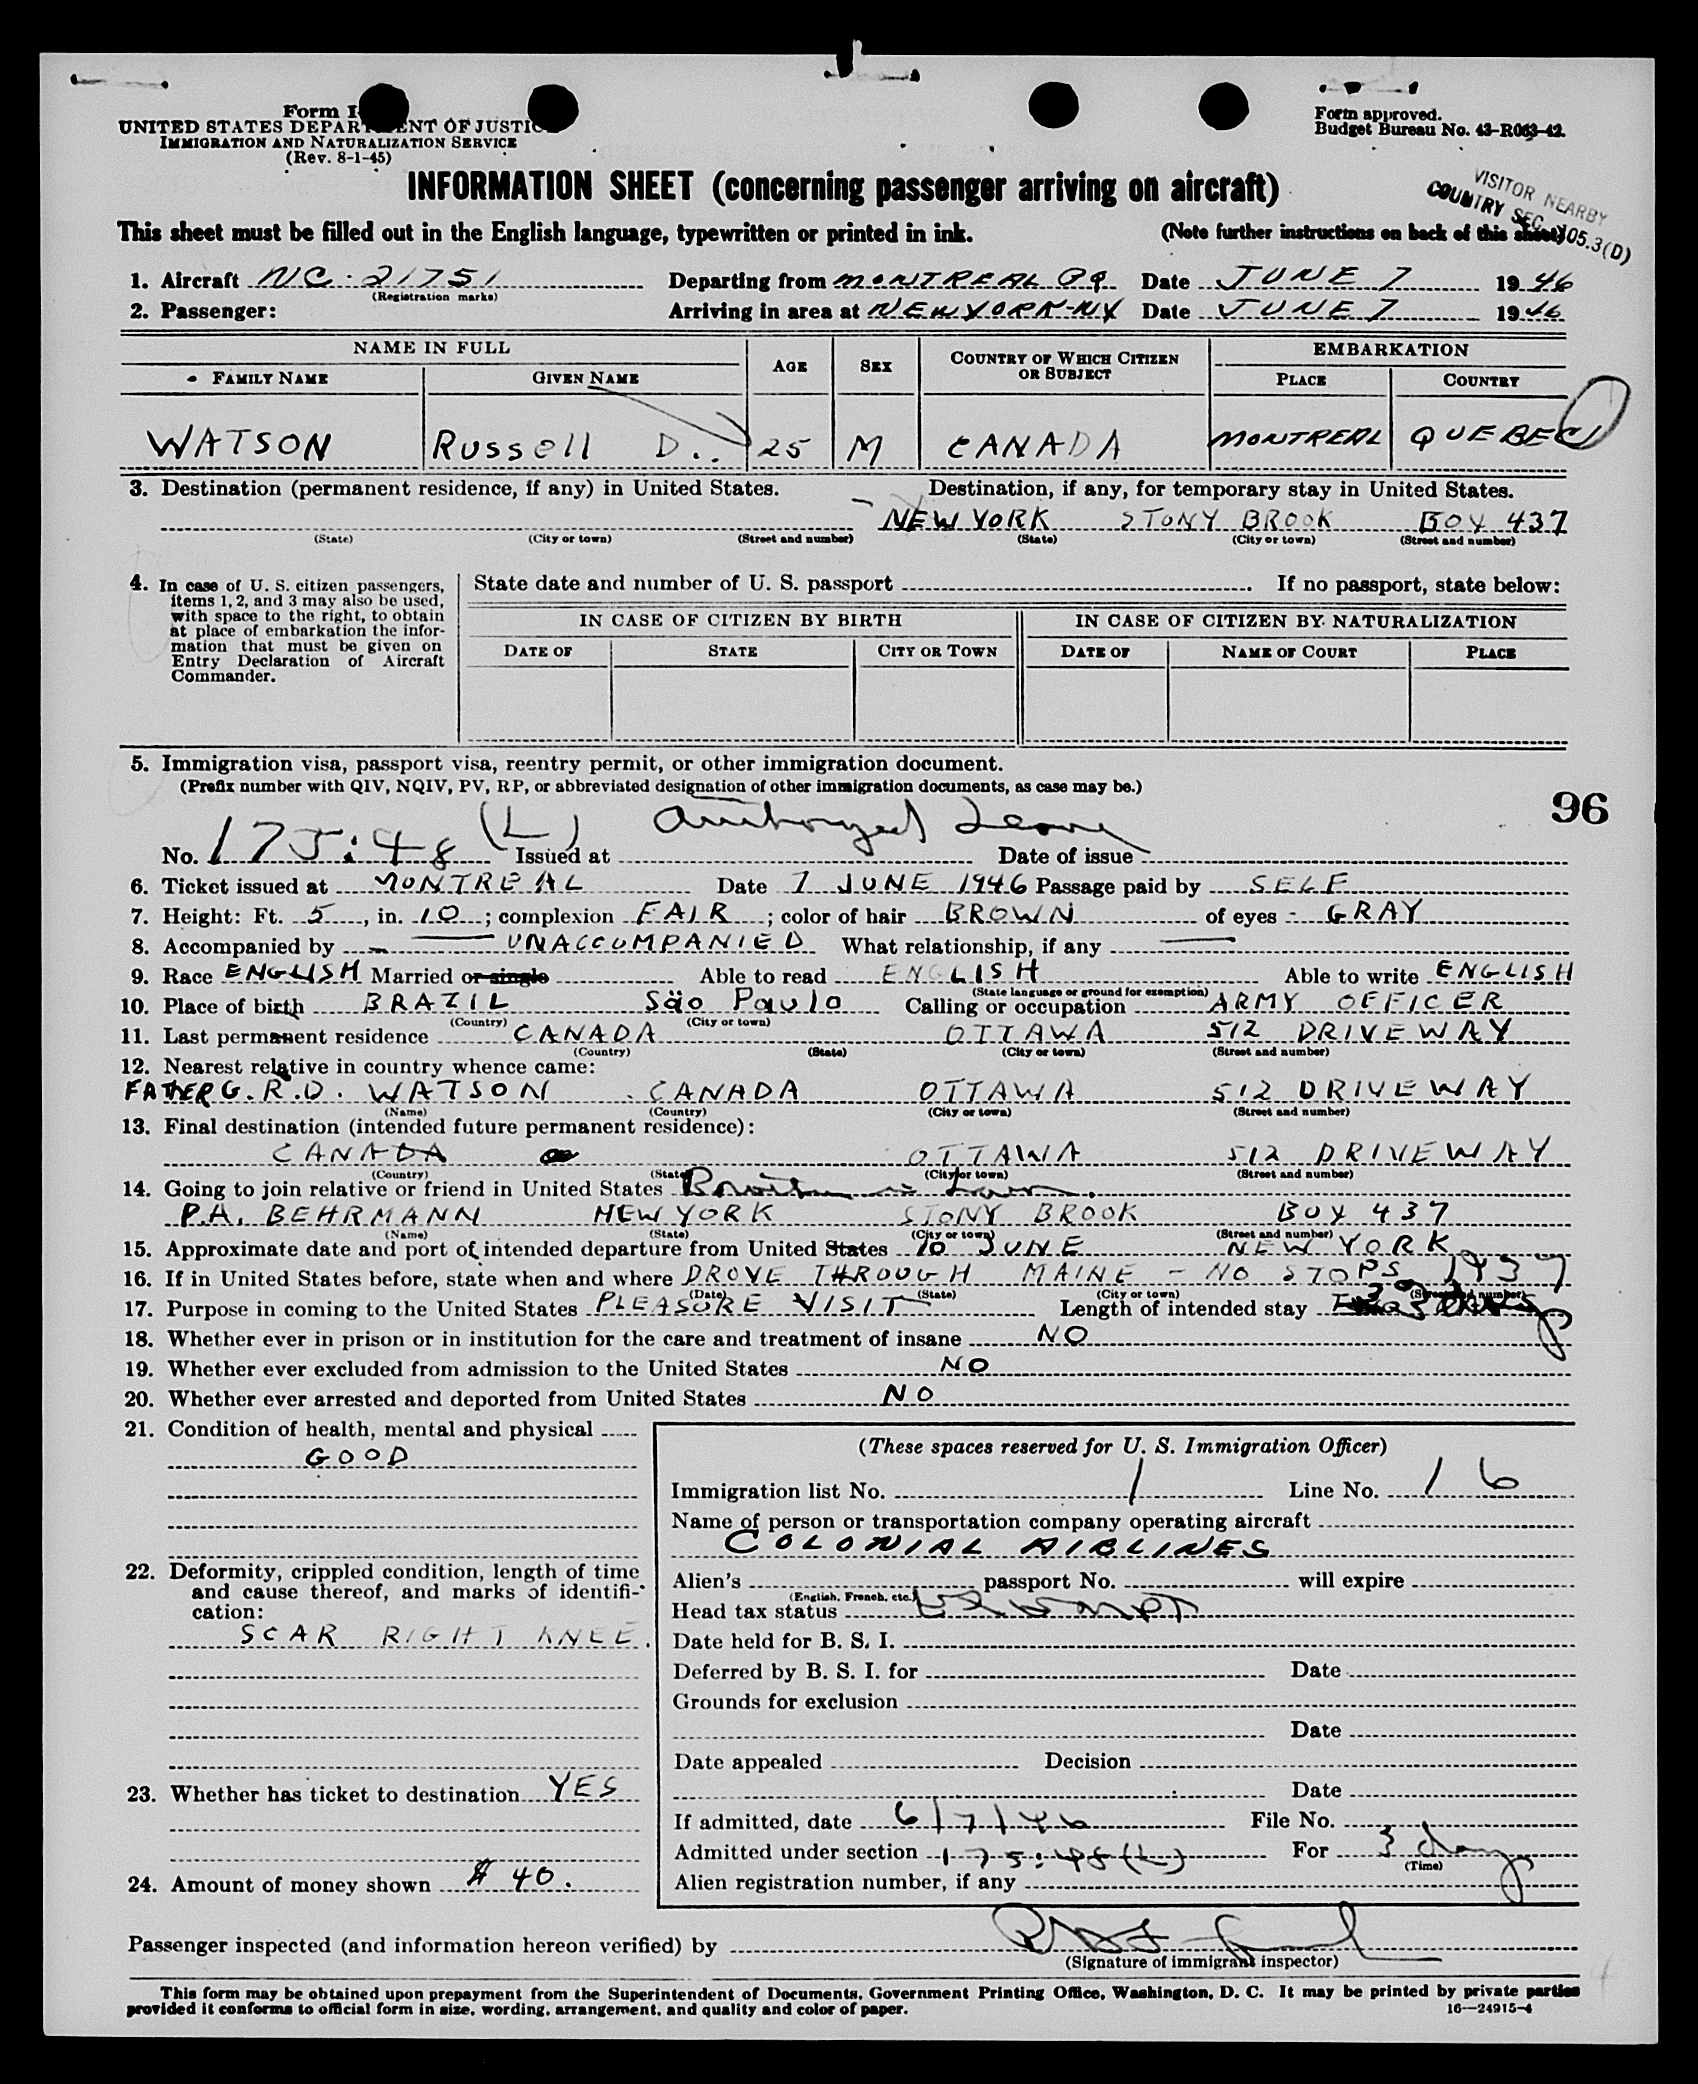 Form I-
UNITED STATES DEPARTMENT OF JUSTICE
IMMIGRATION AND NATURALIZATION SERVICE
(Rev. 8-1-45)
Form approved.
Budget Bureau No. 43-R063-42.
VISITOR NEARBY
COUNTRY SEC. 105.3(D)
INFORMATION SHEET (concerning passenger arriving on aircraft)
This sheet must be filled out in the English language, typewritten or printed in ink. (Note further instructions on back of this sheet)
1. Aircraft NC-21751 Departing from MONTREAL PQ Date JUNE 7 1946
(Registration marks)
2. Passenger: Arriving in area at NEW YORK-NY Date JUNE 7 1946
NAME IN FULL AGE SEX COUNTRY OF WHICH CITIZEN OR SUBJECT EMBARKATION
FAMILY NAME GIVEN NAME PLACE COUNTRY
WATSON Russell D. 25 M CANADA MONTREAL QUEBEC
3. Destination (permanent residence, if any) in United States. Destination, if any, for temporary stay in United States.
NEW YORK STONY BROOK BOX 437
(State) (City or town) (Street and number) (State) (City or town) (Street and number)
4. In case of U. S. citizen passengers, items 1, 2, and 3 may also be used, with space to the right, to obtain at place of embarkation the information that must be given on Entry Declaration of Aircraft Commander.
State date and number of U. S. passport If no passport, state below:
IN CASE OF CITIZEN BY BIRTH IN CASE OF CITIZEN BY NATURALIZATION
DATE OF STATE CITY OR TOWN DATE OF NAME OF COURT PLACE
5. Immigration visa, passport visa, reentry permit, or other immigration document.
(Prefix number with QIV, NQIV, PV, RP, or abbreviated designation of other immigration documents, as case may be.)
96
No. 175:48 (L) Issued at Authorized Leave Date of issue
6. Ticket issued at MONTREAL Date 7 JUNE 1946 Passage paid by SELF
7. Height: Ft. 5, in. 10; complexion FAIR; color of hair BROWN of eyes GRAY
8. Accompanied by UNACCOMPANIED What relationship, if any —
9. Race ENGLISH Married or single Able to read ENGLISH Able to write ENGLISH
(State language or ground for exemption)
10. Place of birth BRAZIL São Paulo Calling or occupation ARMY OFFICER
(Country) (City or town)
11. Last permanent residence CANADA OTTAWA 512 DRIVEWAY
(Country) (State) (City or town) (Street and number)
12. Nearest relative in country whence came:
FATHER G. R. D. WATSON CANADA OTTAWA 512 DRIVEWAY
(Name) (Country) (City or town) (Street and number)
13. Final destination (intended future permanent residence):
CANADA OTTAWA 512 DRIVEWAY
(Country) (State) (City or town) (Street and number)
14. Going to join relative or friend in United States Brother in Law.
P.A. BEHRMANN NEW YORK STONY BROOK BOX 437
(Name) (State) (City or town) (Street and number)
15. Approximate date and port of intended departure from United States 10 JUNE NEW YORK
16. If in United States before, state when and where DROVE THROUGH MAINE - NO STOPS 1937
(Date) (State) (City or town) (Street and number)
17. Purpose in coming to the United States PLEASURE VISIT Length of intended stay 3
18. Whether ever in prison or in institution for the care and treatment of insane NO
19. Whether ever excluded from admission to the United States NO
20. Whether ever arrested and deported from United States NO
21. Condition of health, mental and physical
GOOD
22. Deformity, crippled condition, length of time and cause thereof, and marks of identification:
SCAR RIGHT KNEE.
23. Whether has ticket to destination YES
24. Amount of money shown $ 40.
(These spaces reserved for U. S. Immigration Officer)
Immigration list No. 1 Line No. 16
Name of person or transportation company operating aircraft
COLONIAL AIRLINES
Alien's passport No. will expire
(English, French, etc.)
Head tax status Exempt
Date held for B. S. I.
Deferred by B. S. I. for Date
Grounds for exclusion
Date
Date appealed Decision
Date
If admitted, date 6/7/46 File No.
Admitted under section 175:48(L) For 3 days
(Time)
Alien registration number, if any
Passenger inspected (and information hereon verified) by
(Signature of immigrant inspector)
This form may be obtained upon prepayment from the Superintendent of Documents, Government Printing Office, Washington, D. C. It may be printed by private parties
provided it conforms to official form in size, wording, arrangement, and quality and color of paper. 16—24915-4